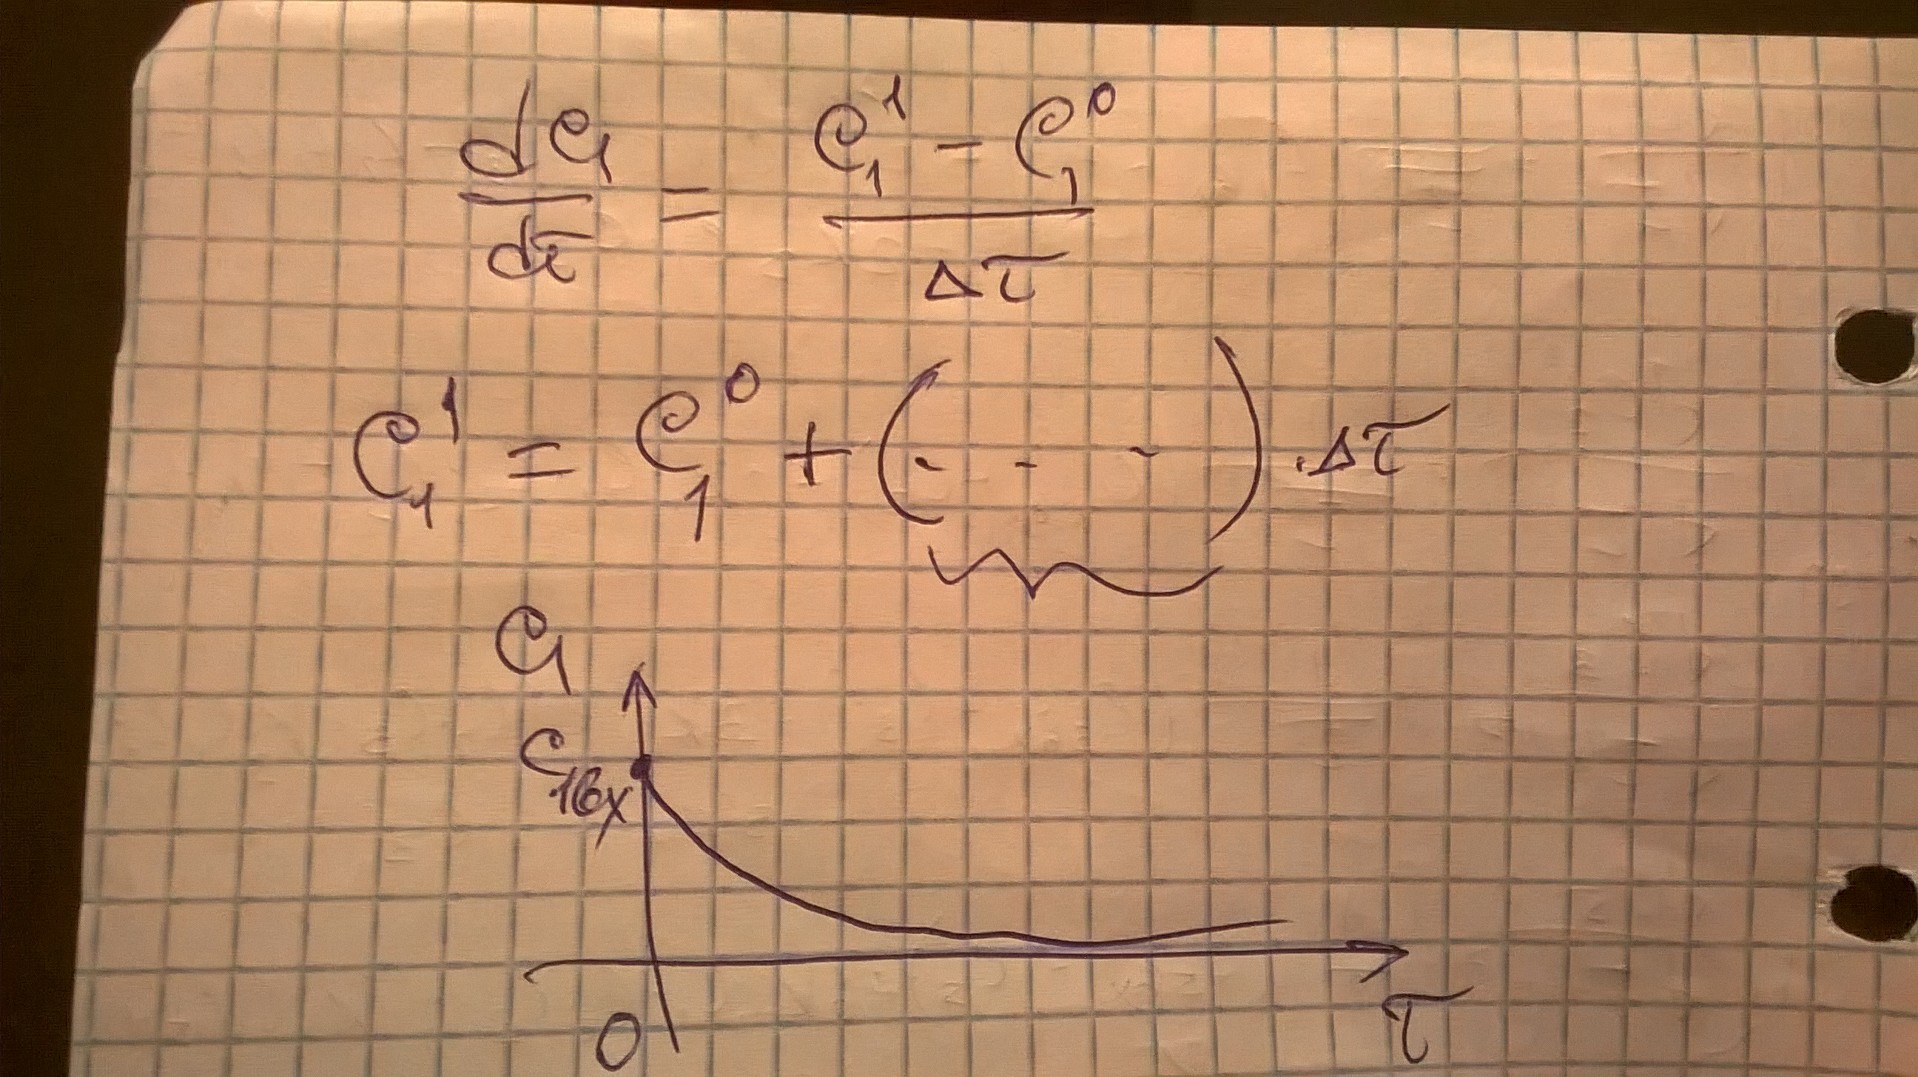 dC₁/dτ = (C₁¹ - C₁⁰)/Δτ
C₁¹ = C₁⁰ + (. - -) · Δτ
C₁
C₁вх
0 τ